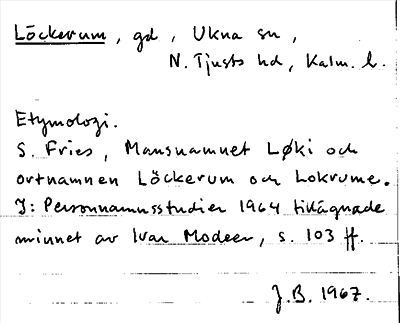 Löckerum, gd, Ukna sn,
N. Tjusts hd, Kalm. l.
Etymologi.
S. Fries, Mansnamnet Løki och
ortnamnen Löckerum och Lokrume.
I: Personnamnsstudier 1964 tillägnade
minnet av Ivar Modéer, s. 103 ff.
J.B. 1967.